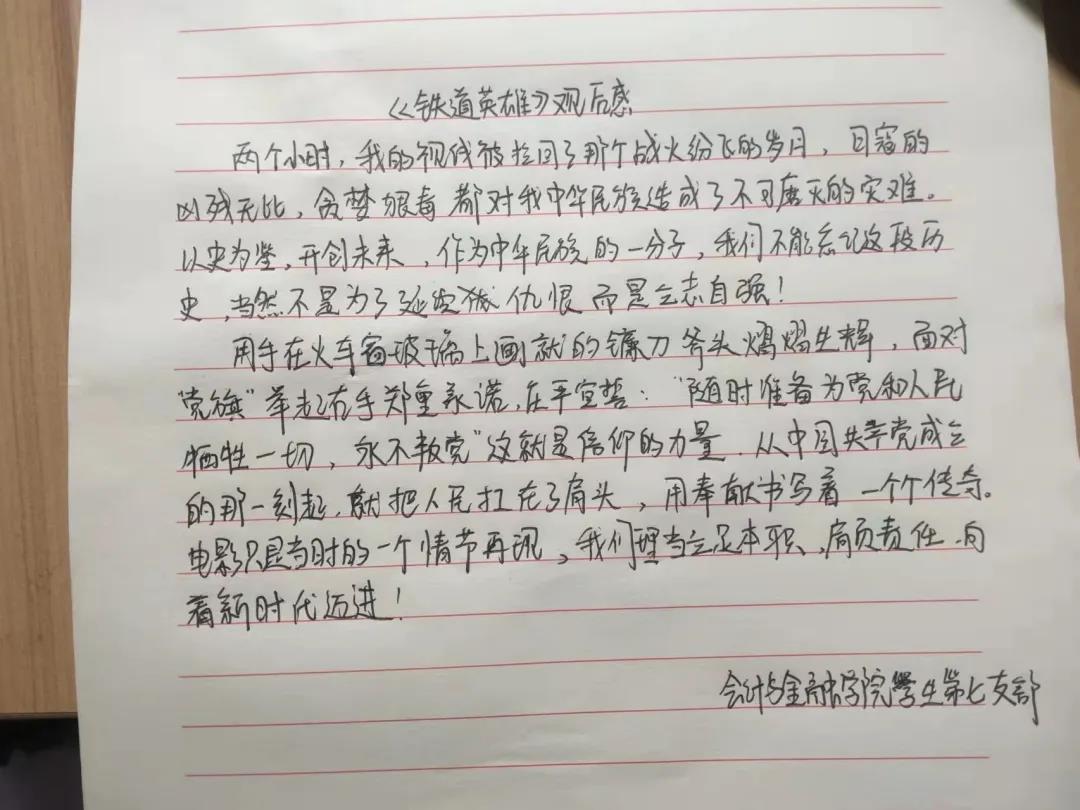 《铁道英雄》观后感
两个小时，我的视线被拉回了那个战火纷飞的岁月，日寇的
凶残无比，贪梦狠毒 都对我中华民族造成了不可磨灭的灾难。
以史为鉴，开创未来，作为中华民族的一分子，我们不能忘记这段历
史，当然不是为了延续 仇恨 而是立志自强！
用手在火车窗玻璃上画就的镰刀斧头熠熠生辉，面对
"党旗"举起右手郑重承诺，庄严宣誓："随时准备为党和人民
牺牲一切，永不叛党"这就是信仰的力量．从中国共产党成立
的那一刻起，就把人民扛在了肩头，用奉献书写着一个个传奇。
电影只是当时的一个情节再现，我们理当立足本职，肩负责任，向
着新时代迈进！
会计与金融学院学生第七支部